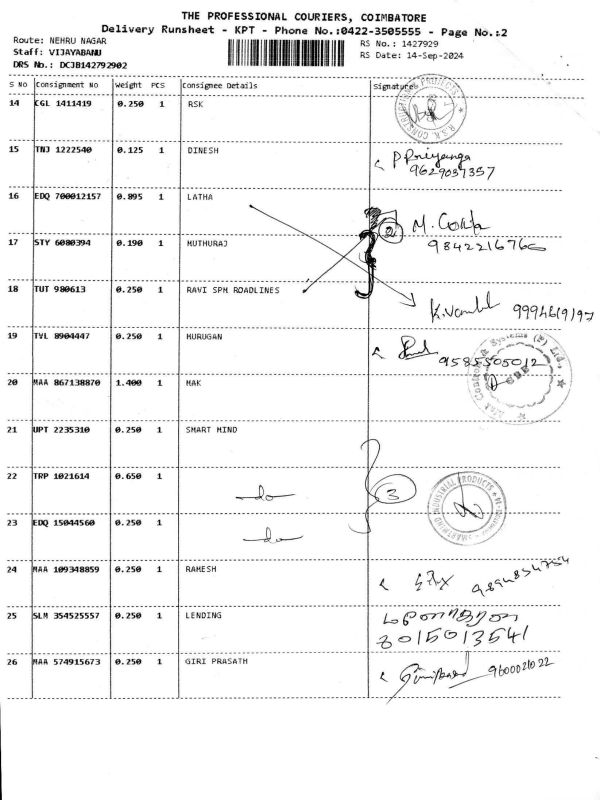 THE PROFESSIONAL COURIERS, COIMBATORE
Delivery Runsheet - KPT - Phone No.:0422-3505555 - Page No.:2
Route: NEHRU NAGAR
RS No.: 1427929
Staff: VIJAYABANU
RS Date: 14-Sep-2024
DRS No.: DCJB142792902
S NO Consignment No Weight PCS Consignee Details Signature
14 CGL 1411419 0.250 1 RSK
15 TNJ 1222540 0.125 1 DINESH
P Priyanga
9629037357
16 EDQ 700012157 0.895 1 LATHA
2 M.
17 STY 6080394 0.190 1 MUTHURAJ
18 TUT 980613 0.250 1 RAVI SPM ROADLINES
9994619197
19 TVL 8904447 0.250 1 MURUGAN
9585505012
20 MAA 867138870 1.400 1 MAK
21 UPT 2235310 0.250 1 SMART MIND
22 TRP 1021614 0.650 1
do 3
23 EDQ 15044560 0.250 1
do
24 MAA 109348859 0.250 1 RAMESH
9894834754
25 SLM 354525557 0.250 1 LENDING
8015013541
26 MAA 574915673 0.250 1 GIRI PRASATH
9600021022